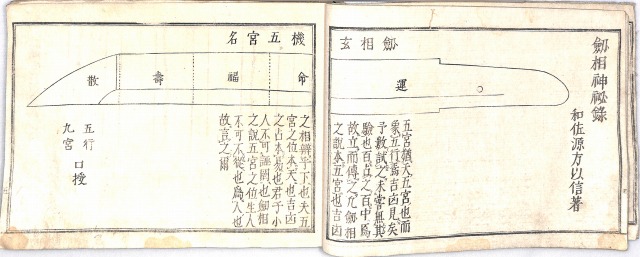 劔相神祕錄
和佐源方以信著
劔相玄
運
五宮猶天五宮也而
象五行焉吉凶見矣
予數試之未嘗無其
驗也百占之百中爲
故立而傳之凡劔相
之說本五宮也吉凶
機五宮名
命
福
壽
散
之相辨乎下也夫五
宮之位本天也吉凶
之占本易也君子小
人不可誣罔也劔相
之說五宮之位生人
不可不從也爲人也
故言之爾
五行
九宮
口授